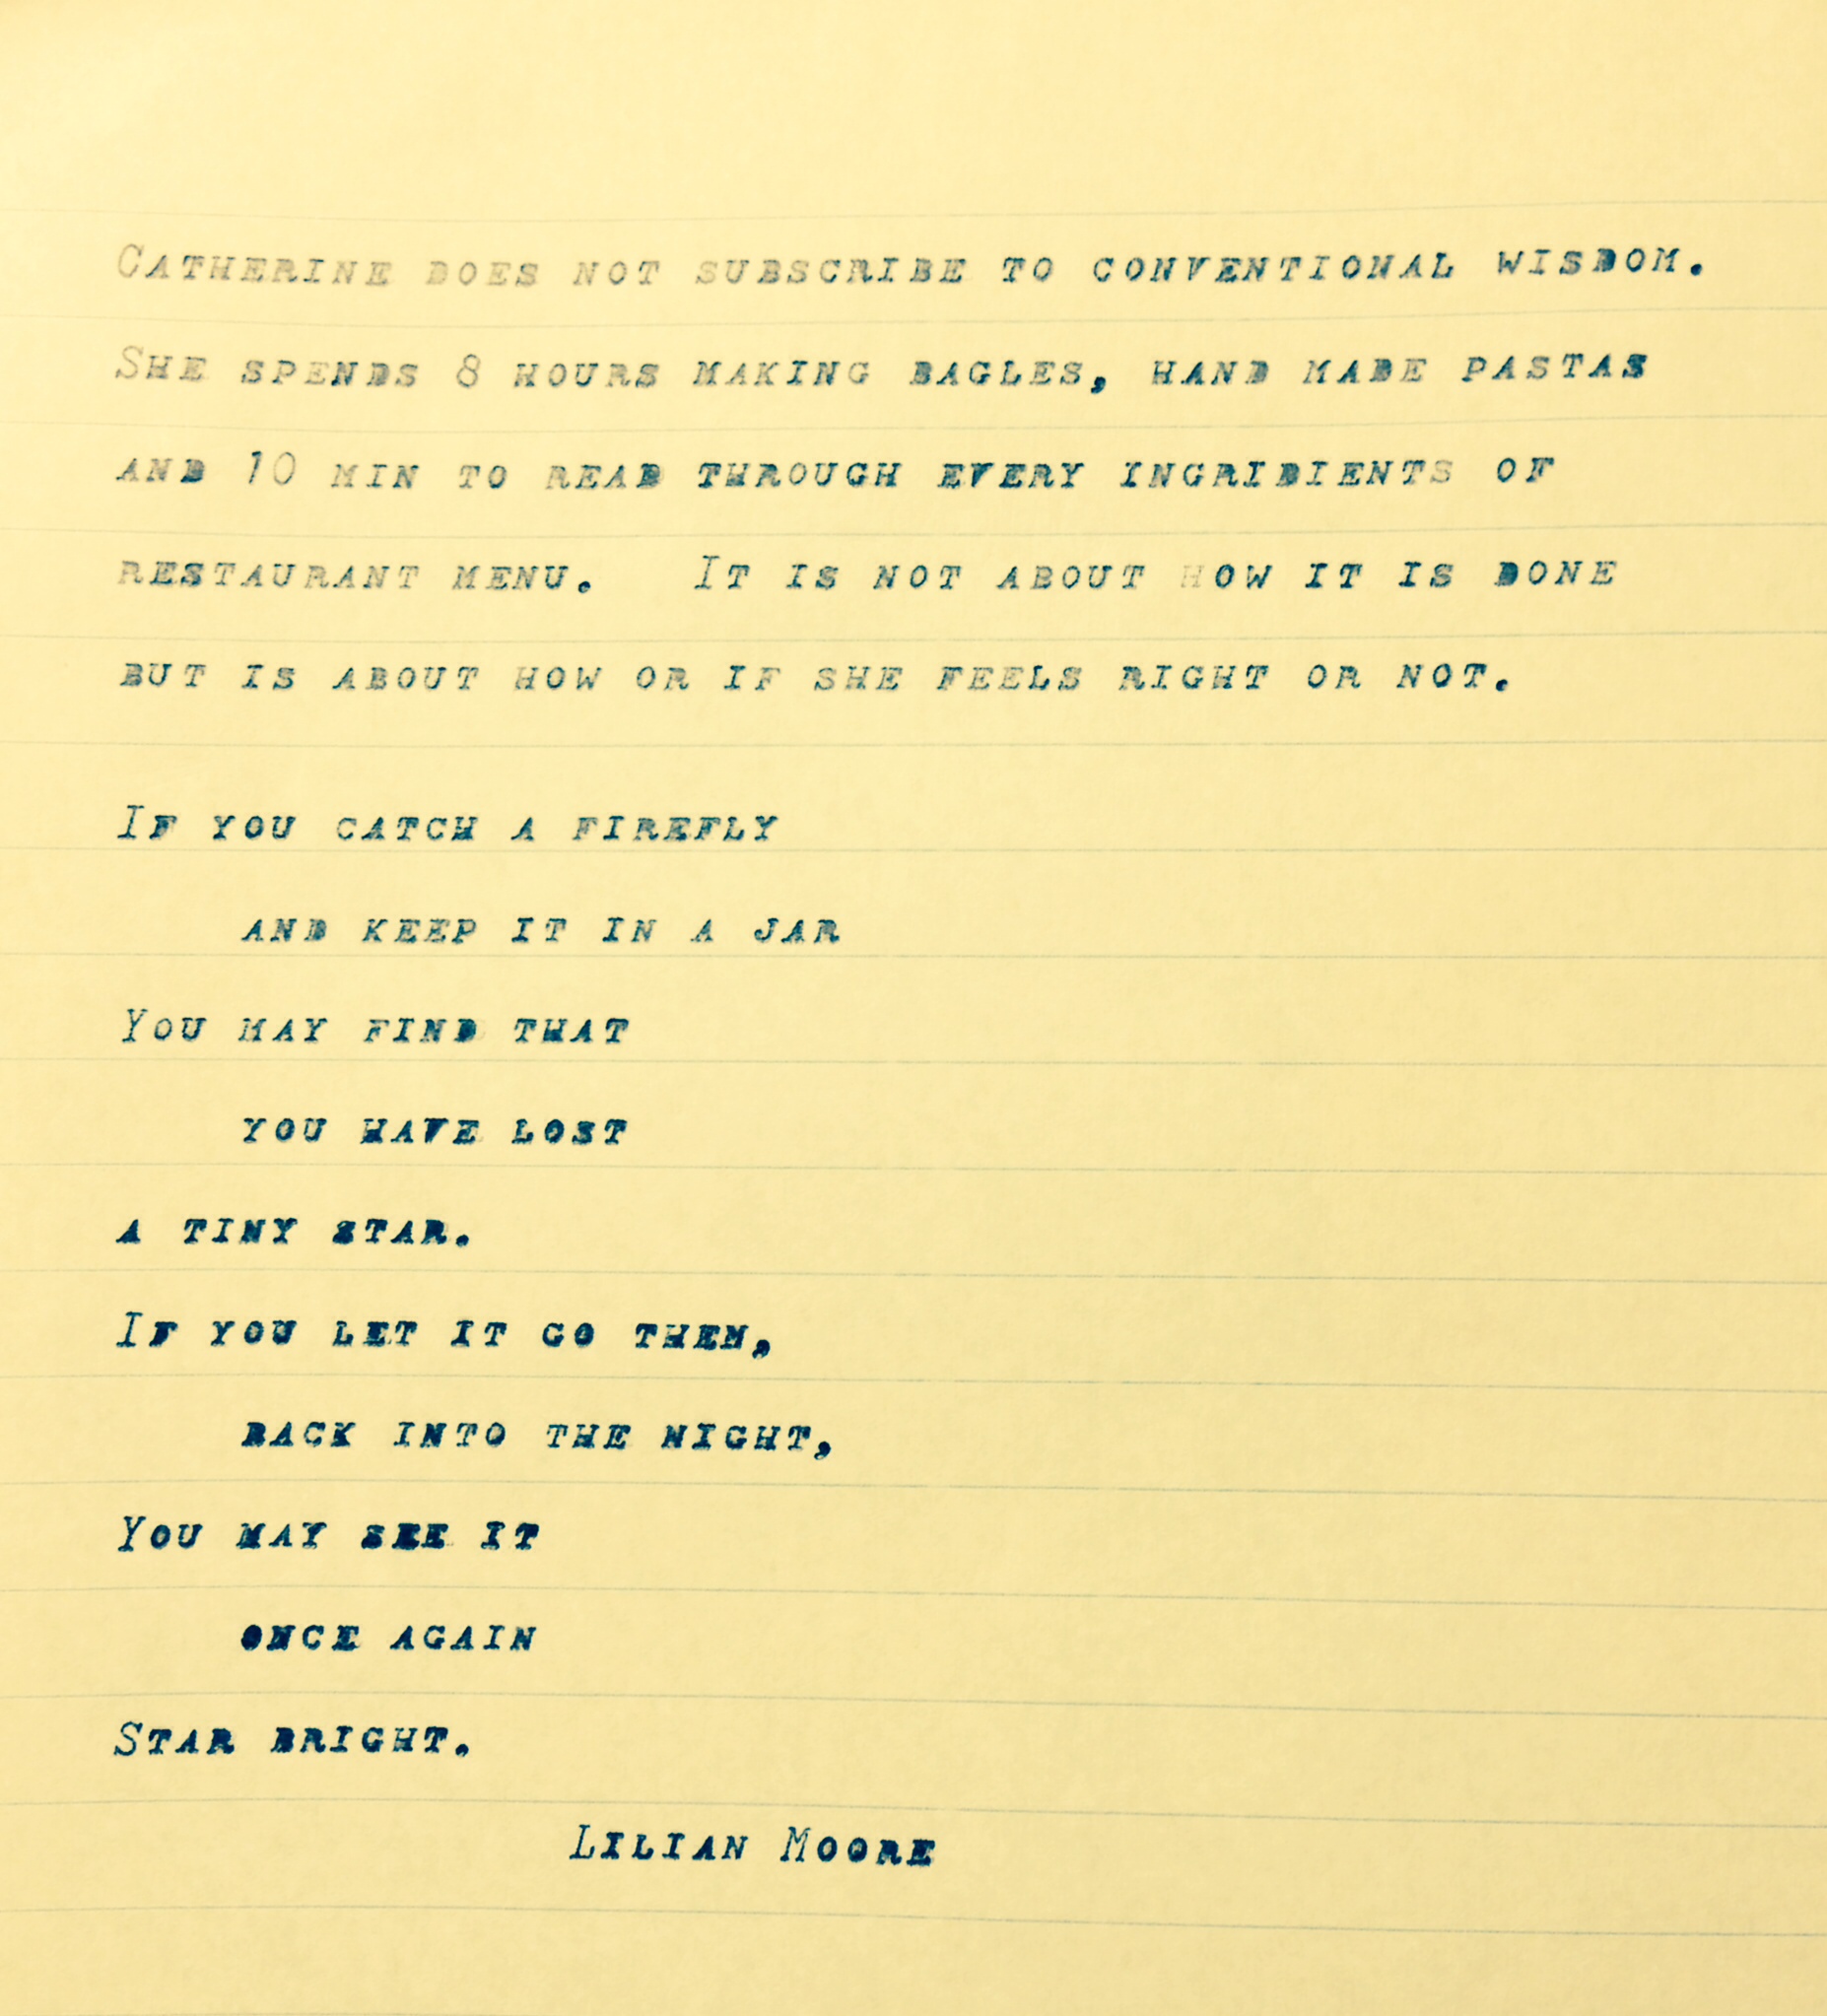 Catherine does not subscribe to conventional wisdom.
She spends 8 hours making bagles, hand made pastas
and 10 min to read through every ingridients of
restaurant menu.   It is not about how it is done
but is about how or if she feels right or not.
If you catch a firefly
and keep it in a jar
You may find that
you have lost
a tiny star.
If you let it go then,
back into the night,
You may see it
once again
Star bright.
Lilian Moore